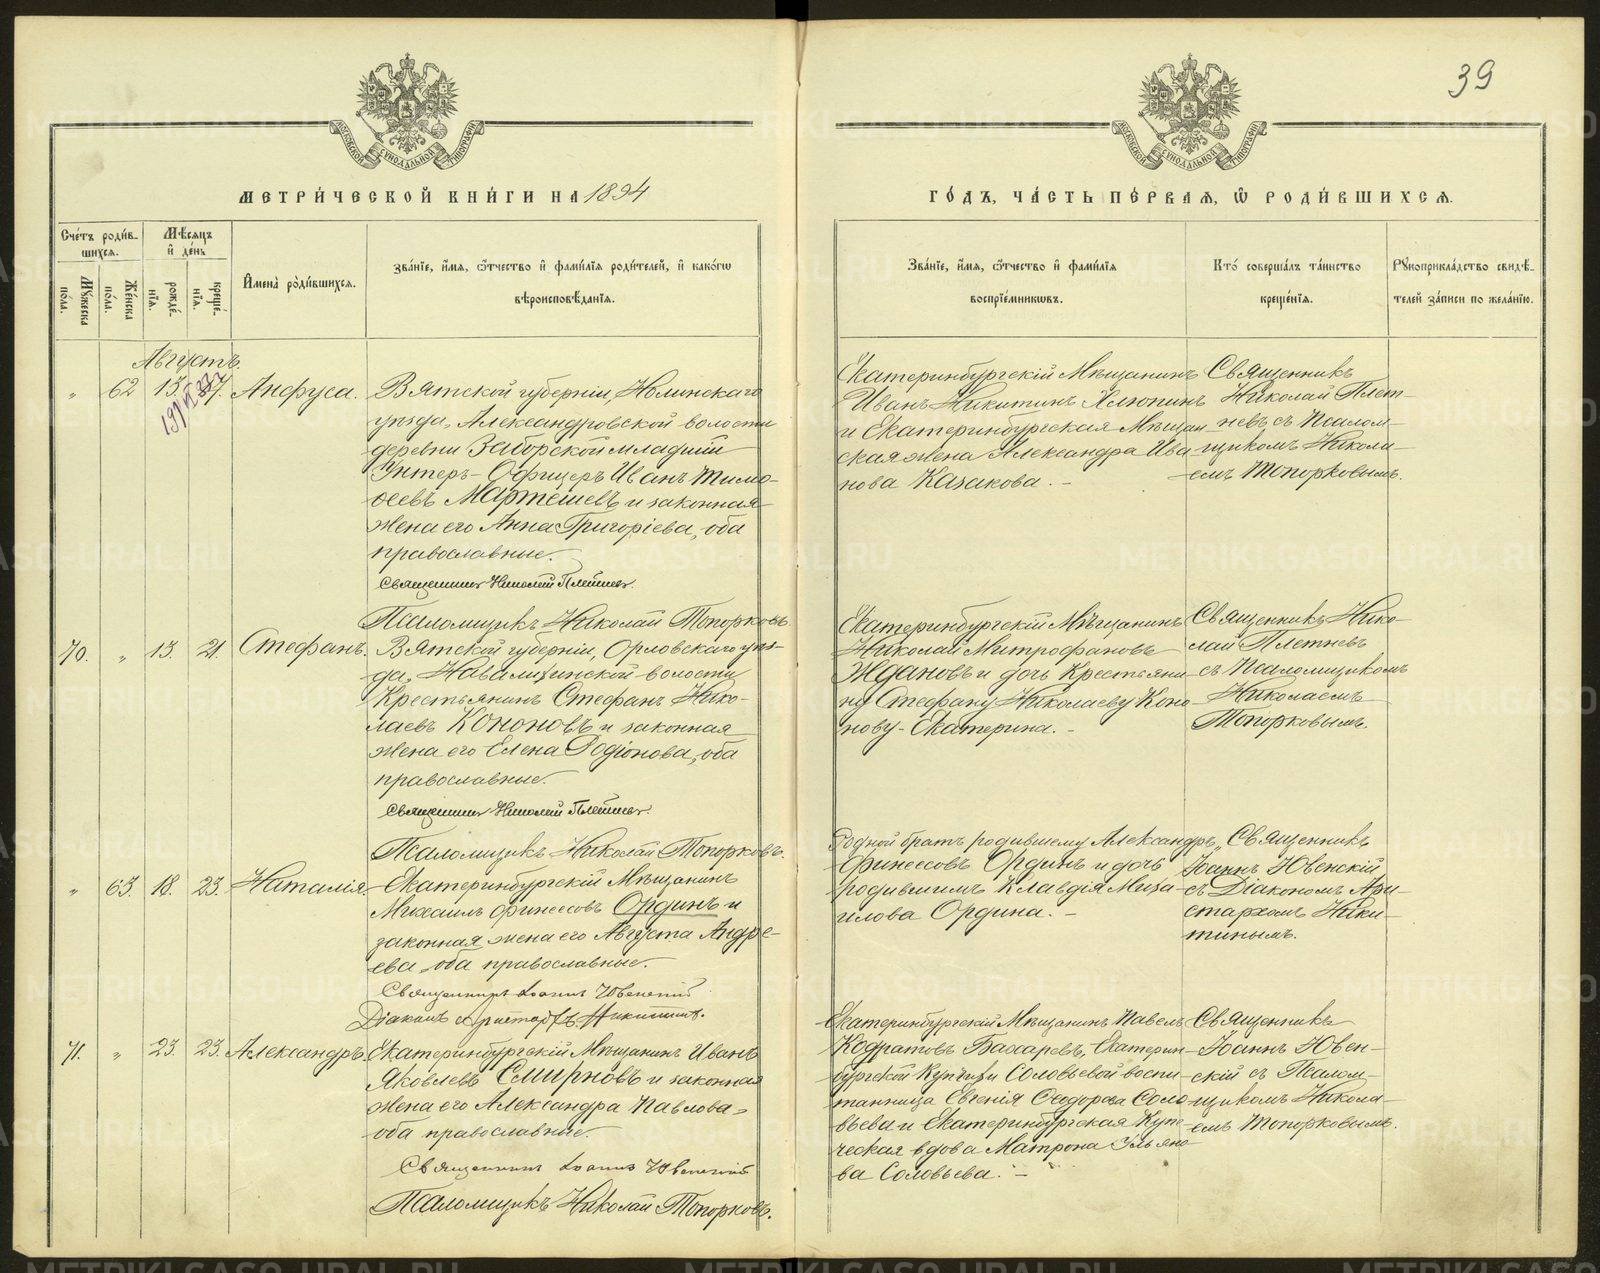 39
МОСКОВСКОЙ СУНОДАЛЬНОЙ ТИПОГРАФІИ
МОСКОВСКОЙ СУНОДАЛЬНОЙ ТИПОГРАФІИ
МЕТРИ́ЧЕСКОЙ КНИ́ГИ НА 1894
ГО́ДЪ, ЧА́СТЬ ПЕ́РВАЯ, Ѽ РОДИ́ВШИХСЯ.
Сче́тъ роди́в-
шихся.
Мѣ́сяцъ
и҆ де́нь
Мꙋ́жеска
по́ла.
Же́нска
по́ла.
рожде́-
нїя.
креще́-
нїя.
И҆мена̀ роди́вшихся.
Зва́нїе, и҆́мя, ѻ҆́тчество и҆ фами́лїя роди́телей, и҆ како́гѡ
вѣроисповѣ́данїя.
Зва́нїе, и҆́мя, ѻ҆́тчество и҆ фами́лїя
воспрїе́мникѡвъ.
Кто̀ соверша́лъ та́инство
креще́нїя.
Рꙋкоприкла́дство свидѣ́-
телей за́писи по жела́нїю.
Августъ.
„ 62 13 Анфуса.
Вятской губерніи, Нолинскаго
уѣзда, Александровской волости
деревни Заборской младшій
Унтеръ-Офицеръ Иванъ Тимо-
ѳеевъ Мартешевъ и законная
жена его Анна Григоріева, оба
православные.
Священникъ Николай Плетневъ.
Псаломщикъ Николай Топорковъ
Екатеринбургскій Мѣщанинъ
Иванъ Никитинъ Хлюпинъ
и Екатеринбургская Мѣщан
ская жена Александра Ива
нова Казакова. -
Священникъ
Николай Плет-
невъ съ Псалом-
щикомъ Никола-
емъ Топорковымъ.
70. „ 13. 21. Стефанъ.
Вятской губерніи, Орловскаго уѣз-
да, волости
Крестьянинъ Стефанъ Нико-
лаевъ Кононовъ и законная
жена его Елена Родіонова, оба
православные.
Священникъ Николай Плетневъ.
Псаломщикъ Николай Топорковъ.
Екатеринбургскій Мѣщанинъ
Николай Митрофановъ
Ждановъ и дочь Крестьяни-
ну Стефану Николаеву Коно-
нову - Екатерина. -
Священникъ Нико-
лай Плетневъ
съ Псаломщикомъ
Николаемъ
Топорковымъ.
„ 63. 18. 23. Наталія
Екатеринбургскій Мѣщанинъ
Михаилъ Финеесовъ Ординъ и
законная жена его Августа Андре-
ева, оба православные.
Священникъ Іоаннъ Ювенскій
Діаконъ Аристархъ Никитинъ.
Родной братъ родившему Александръ
Финеесовъ Ординъ и дочь
родившимъ Клавдія Миха-
илова Ордина. -
Священникъ
Іоаннъ Ювенскій
съ Діакономъ Ари-
стархомъ Ники-
тинымъ.
71. „ 23. 23. Александръ.
Екатеринбургскій Мѣщанинъ Иванъ
Яковлевъ Смирновъ и законная
жена его Александра Павлова,
оба православные.
Священникъ Іоаннъ Ювенскій
Псаломщикъ Николай Топорковъ.
Екатеринбургскій Мѣщанинъ Павелъ
Кодратовъ Бахаревъ, Екатерин-
бургской Купчихи Соловьевой воспи-
танница Евгенія Ѳеодорова Соло-
вьева и Екатеринбургская Купе-
ческая вдова Матрона Ульяно
ва Соловьева. -
Священникъ
Іоаннъ Ювен-
скій съ Псалом-
щикомъ Никола-
емъ Топорковымъ.
METRIKI.GASO-URAL.RU